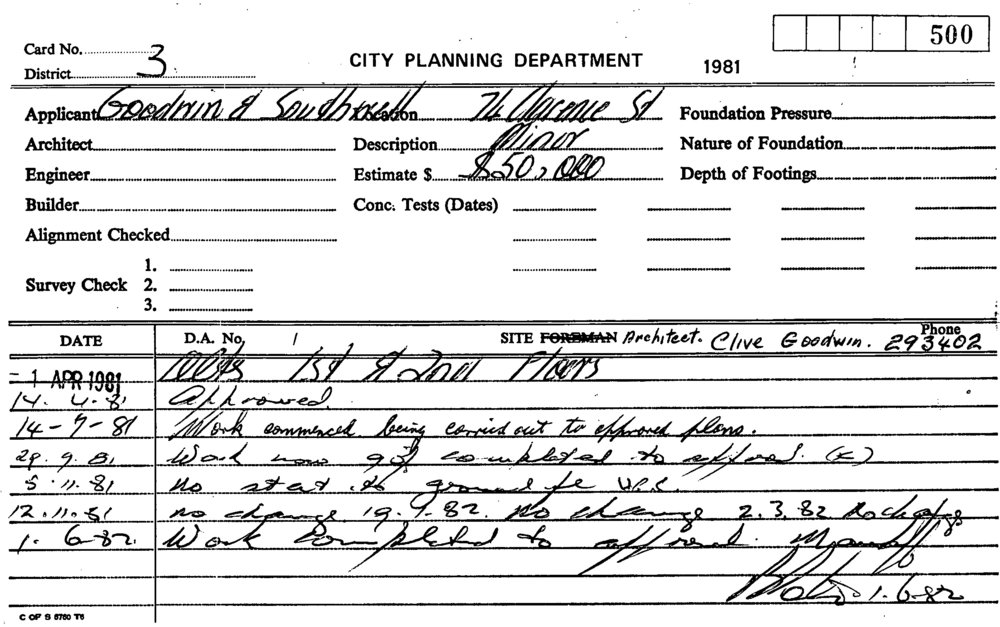 500
Card No.
3
CITY PLANNING DEPARTMENT
1981
District
Applicant Goodwin & Location 74 Clarence St Foundation Pressure
Architect Description Minor Nature of Foundation
Engineer Estimate $ $50,000 Depth of Footings
Builder Conc. Tests (Dates)
Alignment Checked
1.
Survey Check 2.
3.
DATE D.A. No. SITE FOREMAN Architect. Clive Goodwin. Phone 293402
- 1 APR 1981 1st & 2nd Floors
14. 4. 81 Approved.
14-7-81 Work commenced being carried out to approved plans.
29. 9. 81 Work now completed to
5. 11. 81 No start to ground
12. 11. 81 no change 19. 82. No change 2.3.82 No change
1. 6-82. Work completed to
1-6-82
C OF S 8760 T6